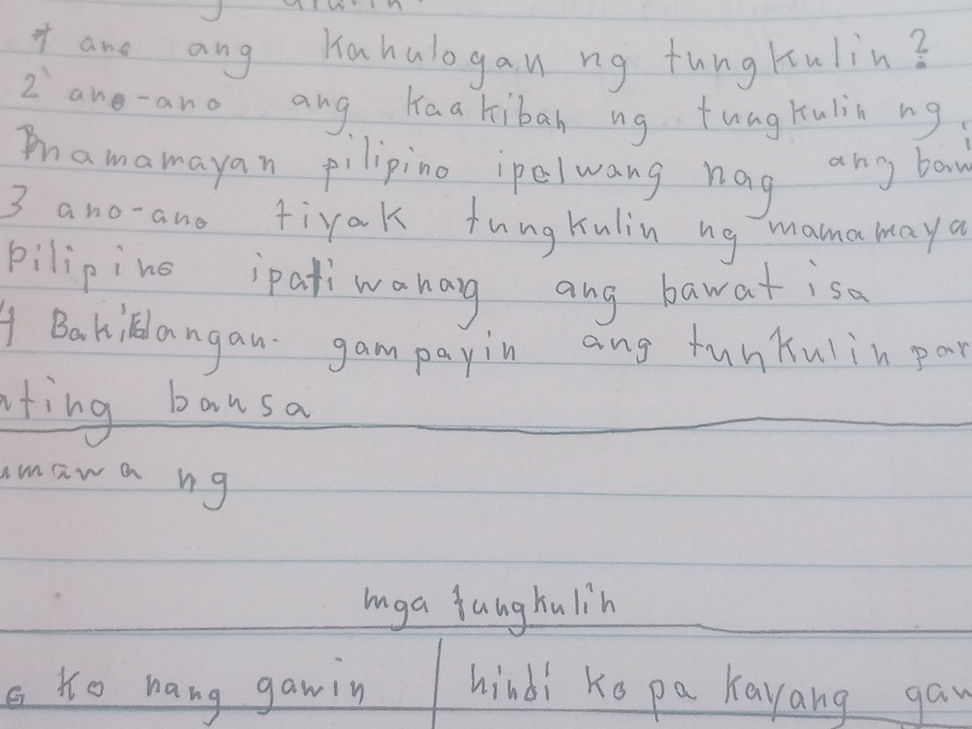 1 ano ang kahulogan ng tungkulin?
2 ano-ano ang kaakibah ng tungkulin ng
mamamayan pilipino ipalwang nag ang baw
3 ano-ano tiyak tungkulin ng mamamaya
pilipino ipatiwanag ang bawat isa
4 Bakilangan. gampayin ang tunkulin par
ating bansa
umawa ng
mga tungkulin
ko nang gawin hindi ko pa kayang gaw